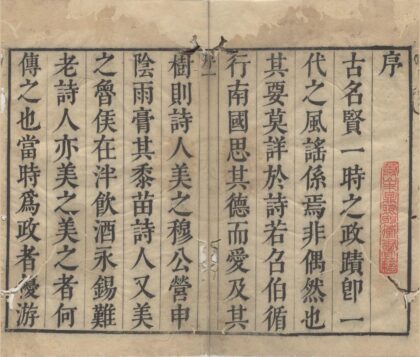 序
古名賢一時之政蹟卽一
代之風謠係焉非偶然也
其要莫詳於詩若召伯循
行南國思其德而愛及其
樹則詩人美之穆公營申
陰雨膏其黍苗詩人又美
之魯侯在泮飲酒永錫難
老詩人亦美之美之者何
傳之也當時爲政者優游